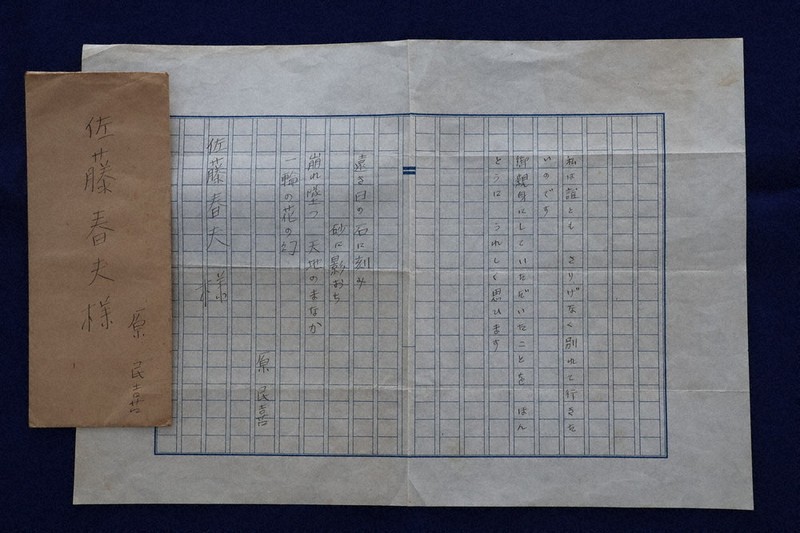 佐藤春夫様
原民喜
私は誰とも さりげなく別れて行きた
いのです
御親切にしていたゞいたことを ほん
とうに うれしく思ひます
遠き日の石に刻み
砂に影おち
崩れ墜つ 天地のまなか
一輪の花の幻
原民喜
佐藤春夫様